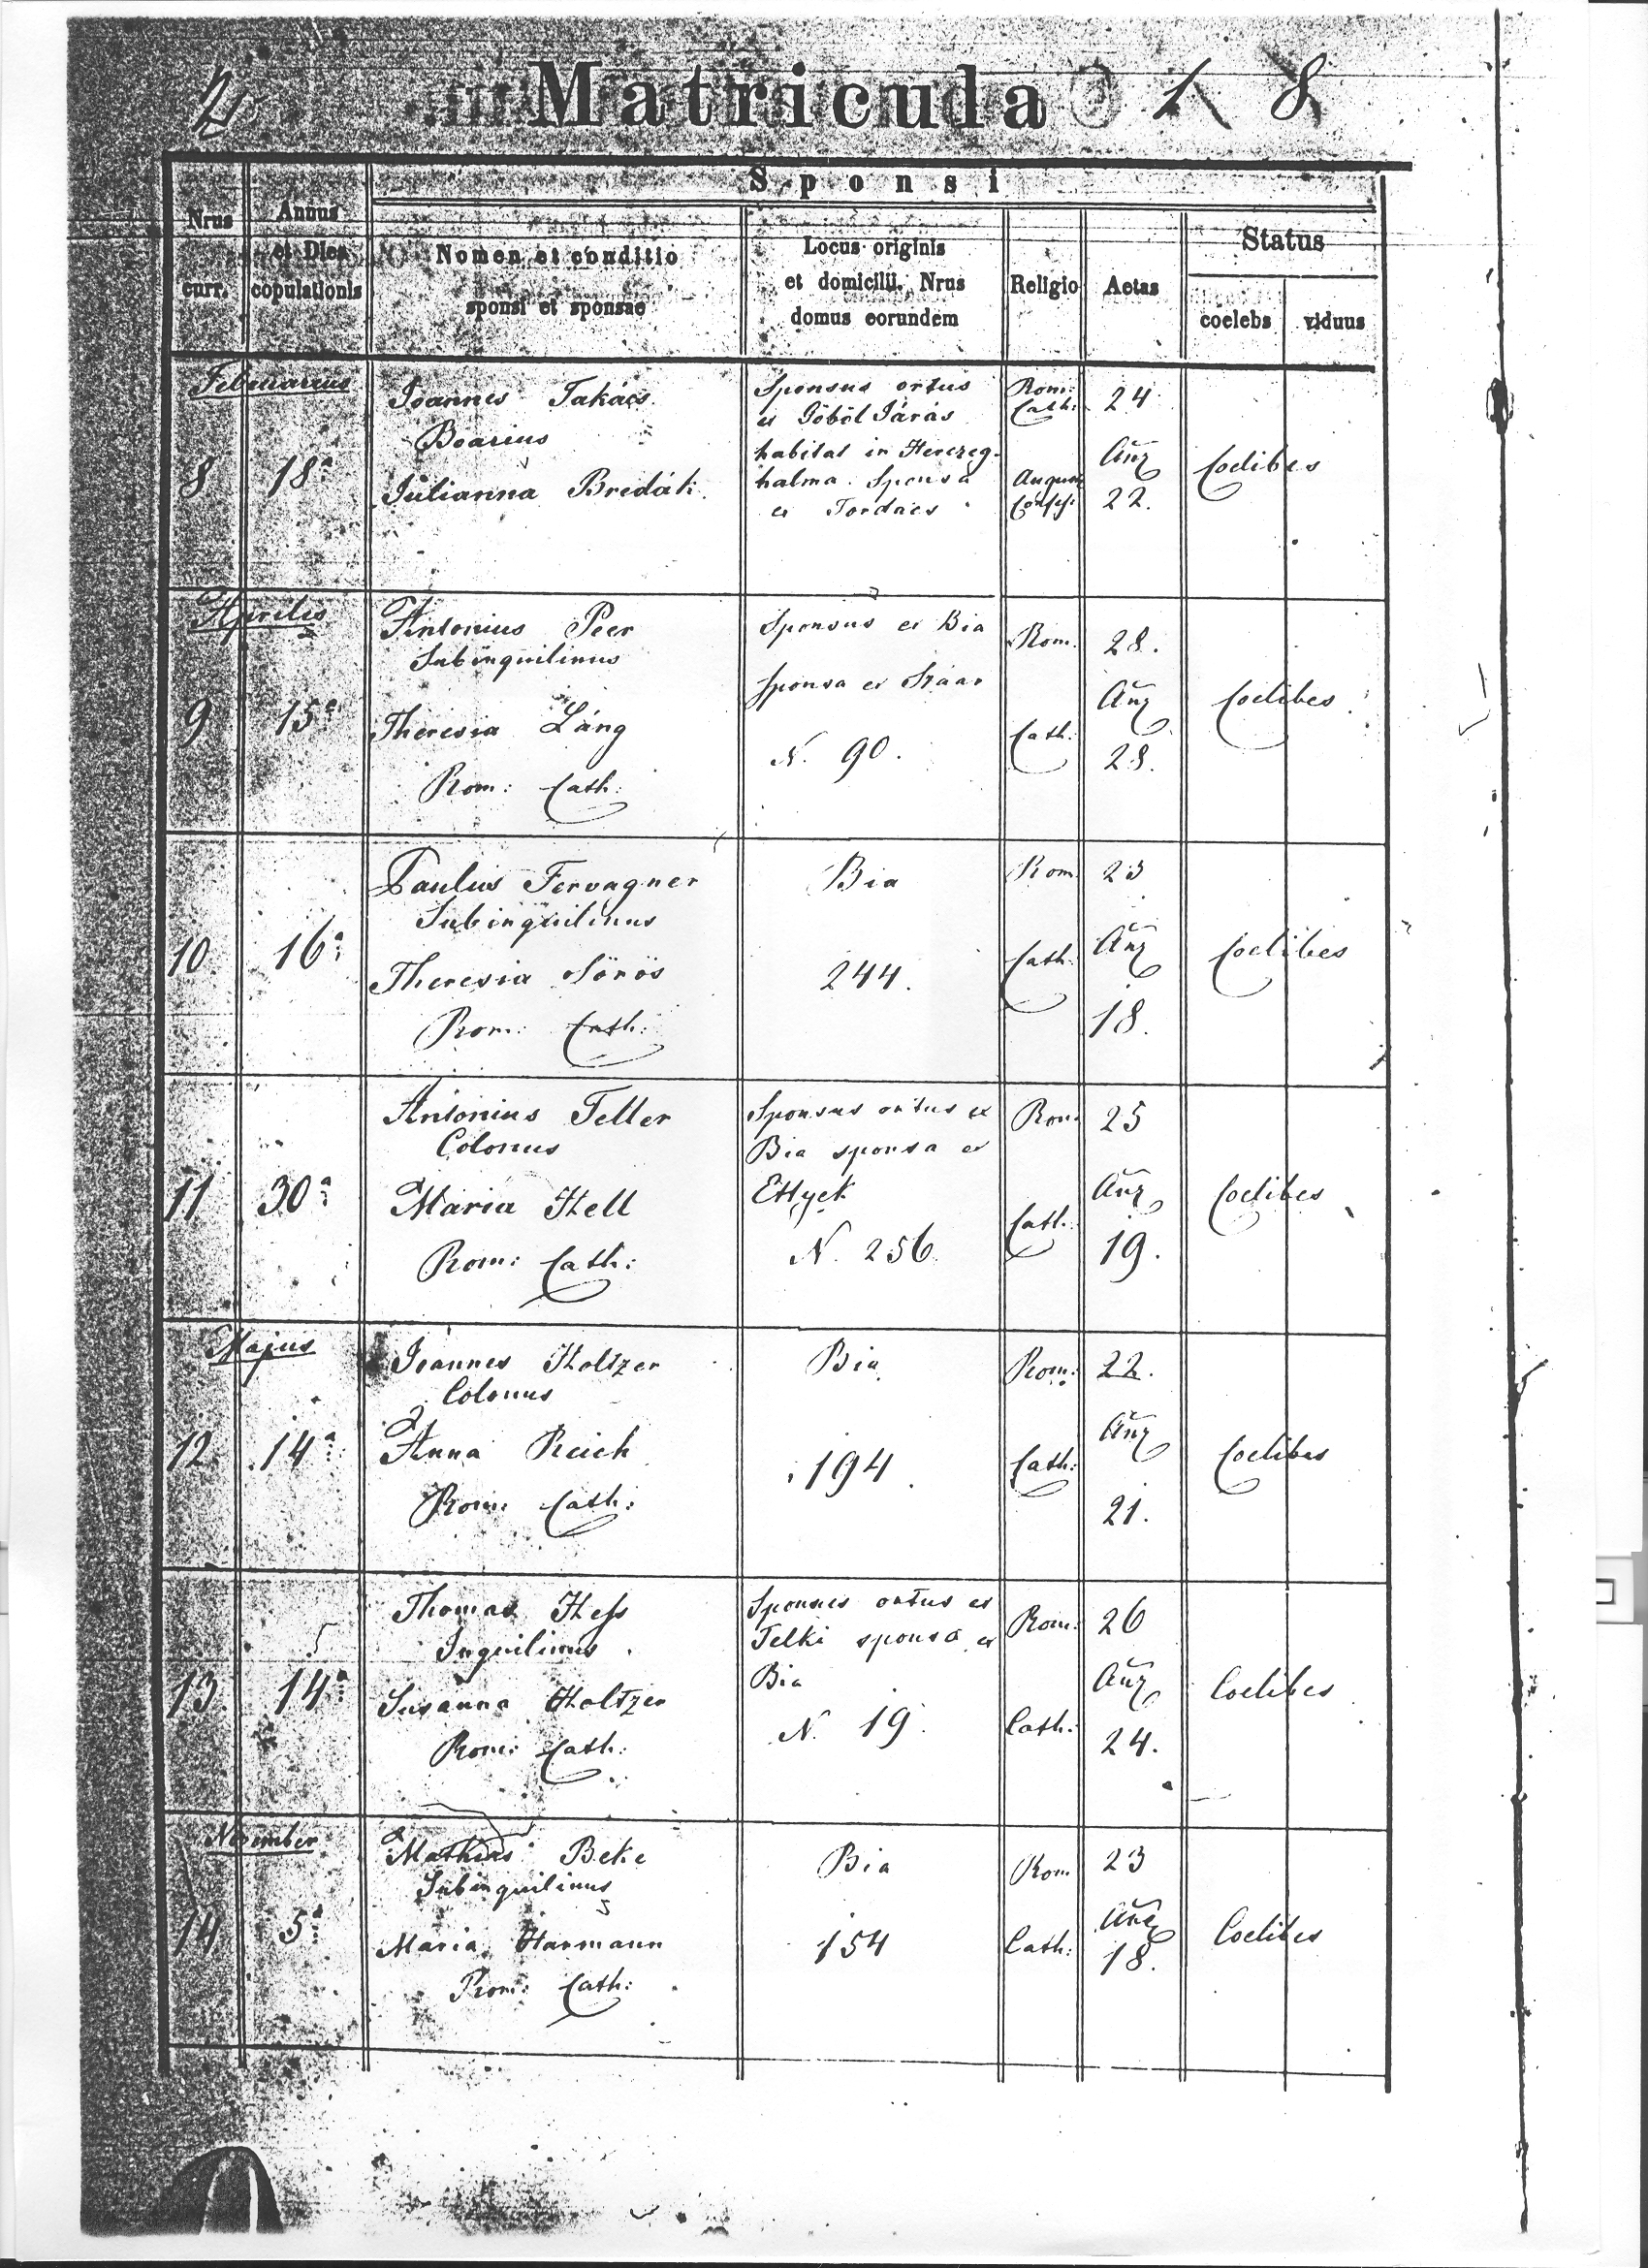 Matricula 1 8
Sponsi
Nrus curr.
Annus et Dies copulationis
Nomen et conditio sponsi et sponsae
Locus originis et domicilii. Nrus domus eorundem
Religio
Aetas
Status
coelebs
viduus
Februarius
8
18ª
Joannes Takács
Boarius
Julianna Bredák
Sponsus ortus
ex Göböl Járás
habitat in Herczeg-
halma. Sponsa
ex Tordács
Rom:
Cath:
August.
Confess:
24
Añ
22.
Coelibes
Aprilis
9
15ª
Antonius Peer
Subinquilinus
Theresia Láng
Rom: Cath:
Sponsus ex Bia
Sponsa ex Szaar
N. 90.
Rom.
Cath:
28.
Añ
28.
Coelibes
10
16ª
Paulus Fervagner
Subinquilinus
Theresia Sörös
Rom: Cath:
Bia
244.
Rom
Cath:
23
Añ
18.
Coelibes
11
30ª
Antonius Teller
Colonus
Maria Hell
Rom: Cath:
Sponsus ortus ex
Bia sponsa ex
Ettyek
N. 256
Rom:
Cath:
25
Añ
19.
Coelibes
Majus
12
14ª
Joannes Holtzer
Colonus
Anna Reich
Rom: Cath:
Bia
194.
Rom:
Cath:
22.
Añ
21.
Coelibes
13
14ª
Thomas Hess
Inquilinus
Susanna Holtzer
Rom: Cath:
Sponsus ortus ex
Telki sponsa ex
Bia
N. 19.
Rom:
Cath:
26
Añ
24.
Coelibes
November
14
5ª
Mathias Beke
Subinquilinus
Maria Harmann
Rom: Cath:
Bia
154
Rom
Cath:
23
Añ
18.
Coelibes